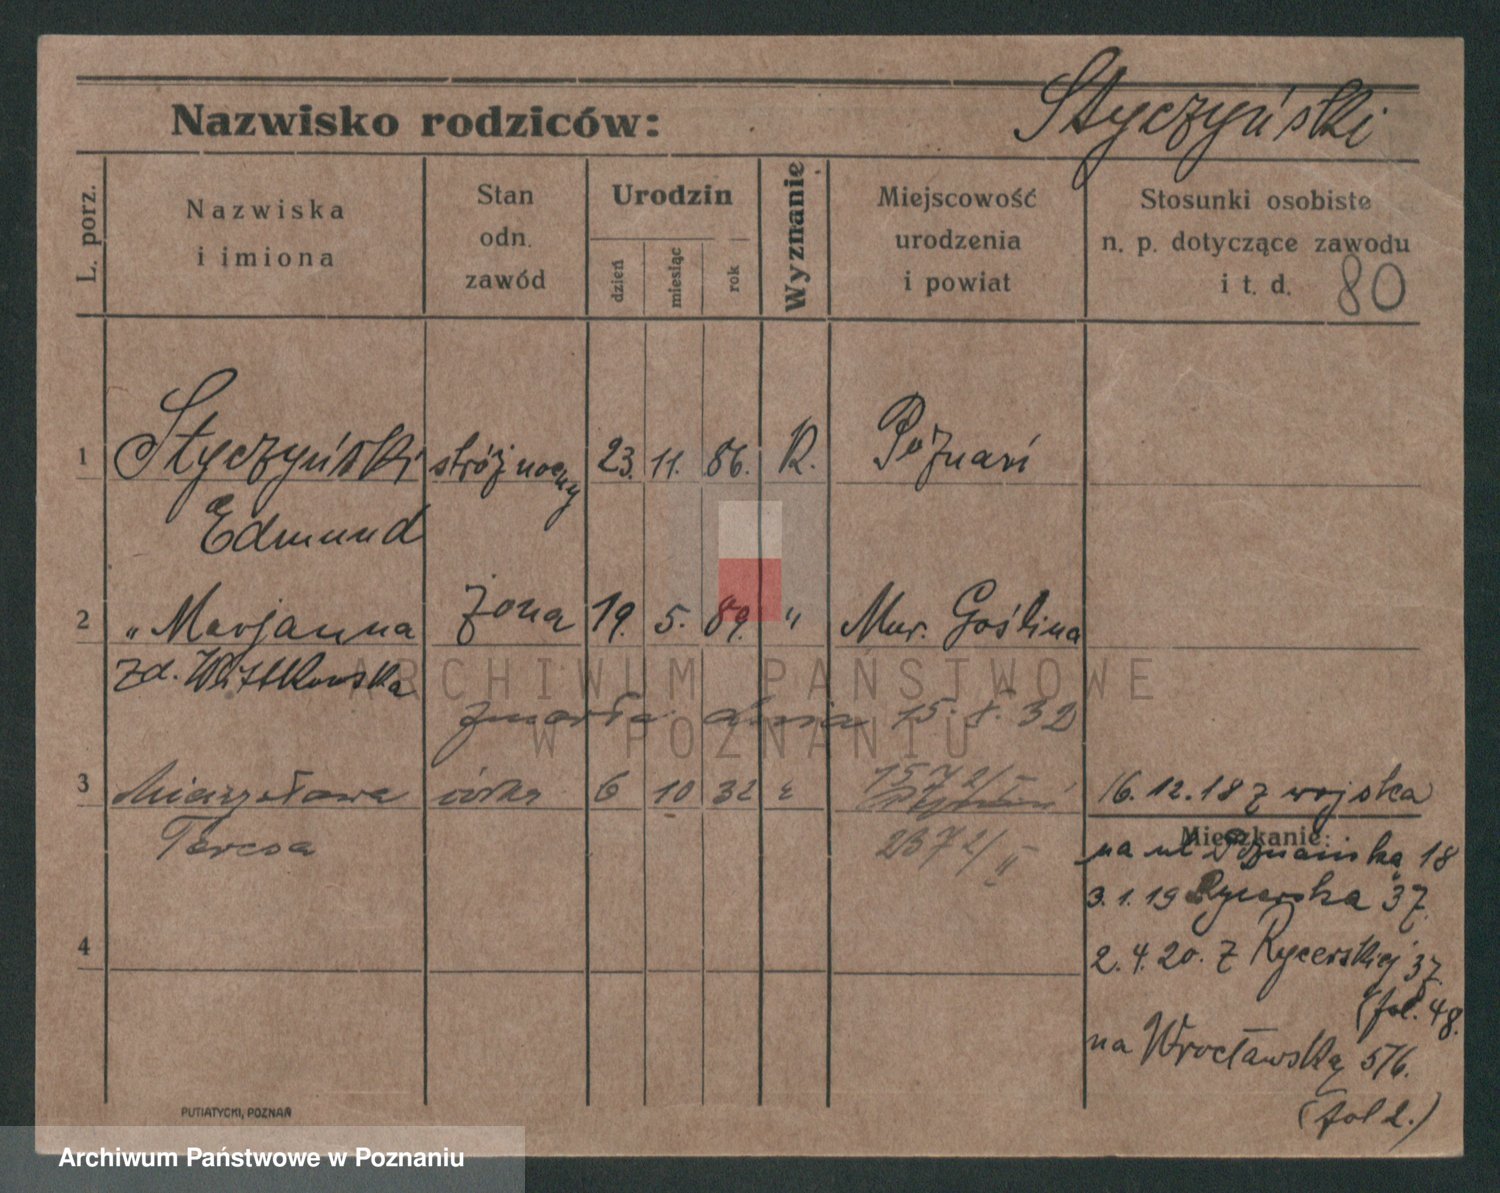 Nazwisko rodziców: Styczyński
L. porz.
Nazwiska
i imiona
Stan
odn.
zawód
Urodzin
dzień
miesiąc
rok
Wyznanie
Miejscowość
urodzenia
i powiat
Stosunki osobiste
n. p. dotyczące zawodu
i t. d.
80
1 Styczyński stróż nocny 23. 11. 86. R. Poznań
Edmund
2 „ Marjanna żona 19. 5. 89. " Mur. Goślina
zd. Wittkowska
zmarła dnia 15. 8. 32
3 Mieczysława córka 6 10 32
1572/I
Teresa
2372/II
16.12.18 z wojska
Mieszkanie:
na ul Poznańska 18
3.1.19 Rycerska 37.
2.4.20. z Rycerskiej 37
(fol. 48.
na Wrocławską 5/6.
(fol 2.)
4
PUTIATYCKI, POZNAŃ
ARCHIWUM PAŃSTWOWE
W POZNANIU
Archiwum Państwowe w Poznaniu